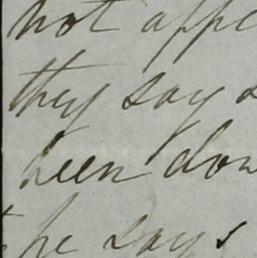 not appe
they say s
been don
he says